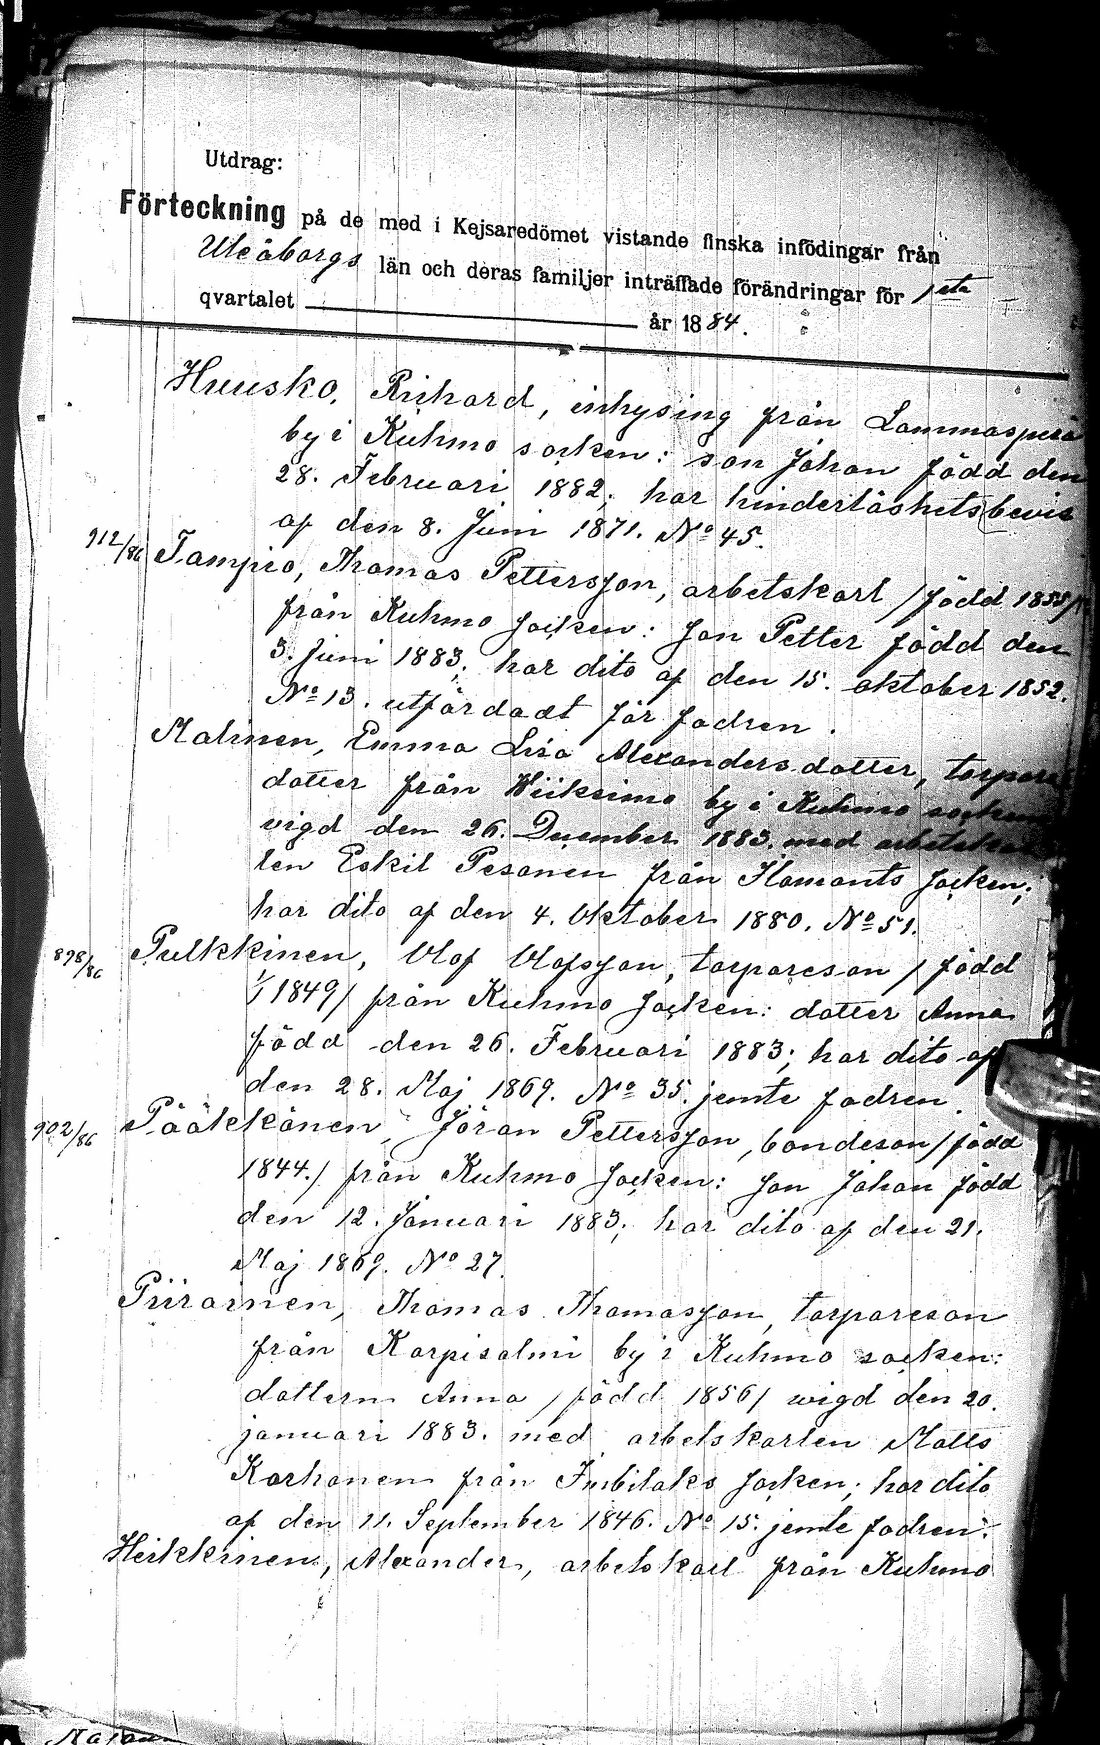 Utdrag:
Förteckning på de med i Kejsaredömet vistande finska infödingar från
Uleåborgs län och deras familjer inträffade förändringar för 1sta
qvartalet år 1884.
Huusko, Rikhard, inhysing från Lammasperä
by i Kuhmo socken: son Johan född den
28. Februari 1882; har hinderlöshetsbevis
af den 8. Juni 1871. No 45.
912/86 Tampio, Thomas Pettersson, arbetskarl /född 1855/
från Kuhmo socken: son Petter född den
3. Juni 1883; har dito af den 15. oktober 1852.
No 13. utfärdadt för fadren.
Malinen, Emma Lisa Alexandersdotter, torpare
dotter från Hiiksimo by i Kuhmo socken
vigd den 26. December 1883. med arbetskar
len Eskil Pesonen från Ilomants socken;
har dito af den 4. Oktober 1880. No 51.
898/86 Pulkkinen, Olof Olofsson, torpareson /född
1/1 1849/ från Kuhmo socken: dotter Anna
född den 26. Februari 1883; har dito af
den 28. Maj 1869. No 35. jemte fadren.
902/86 Pääkkönen, Jöran Pettersson, bondeson /född
1844./ från Kuhmo socken: son Johan född
den 12. Januari 1883; har dito af den 21.
Maj 1869. No 27.
Piirainen, Thomas Thomasson, torpareson
från Karpisalmi by i Kuhmo socken:
dottern Anna /född 1856/ wigd den 20.
januari 1883. med arbetskarlen Matts
Korhonen från Imbilaks socken; har dito
af den 11. September 1846. No 15. jemte fadren.
Heikkinen, Alexander, arbetskarl från Kuhmo